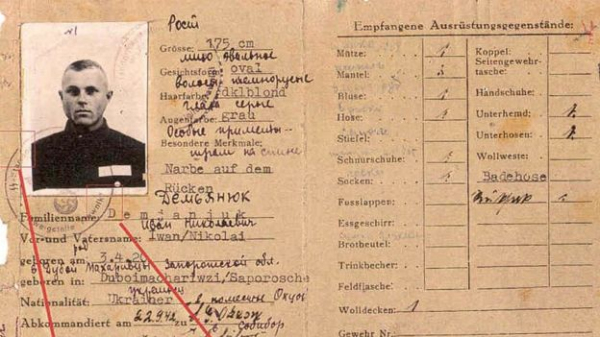 Рост
Grösse: 175 cm
Gesichtsform: oval
Haarfarbe: dklblond
глаза серые
Augenfarbe: grau
Особые приметы
Besondere Merkmale:
шрам на спине
Narbe auf dem
Rücken
ДЕМЬЯНЮК
Familienname: Demjanjuk
Иван Николаевич
Vor-und Vatersname: Iwan/Nikolai
geboren am 3.4.20
Запорожской обл.
geboren in: Duboimachariwzi/Saporosche
Nationalität: Ukrainer
Abkommandiert am 22.9.42 zu
Собибор
Empfangene Ausrüstungsgegenstände:
Mütze: 1 Koppel:
Mantel: Seitengewehr-
tasche:
Bluse: 1 Handschuhe:
Hose: 1 Unterhemd: 1.
Stiefel: Unterhosen: 1.
Schnurschuhe: 1 Wollweste:
Socken: 1 Badehose
Fusslappen:
Essgeschirr:
Brotbeutel:
Trinkbecher:
Feldflasche:
Wolldecken: 1
Gewehr Nr.